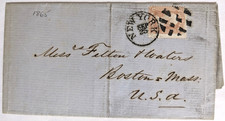 1865
NEW YORK
Mess. Felton & Waters
Boston Mass.
U.S.a.